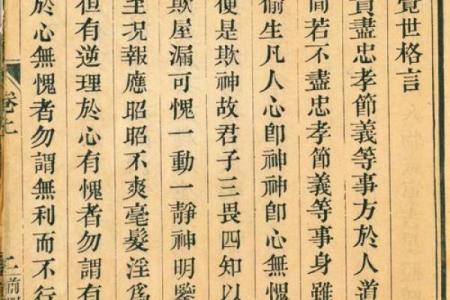 覺世格言
貴盡忠孝節義等事方於人道
間若不盡忠孝節義等事身雖
偷生凡人心卽神神卽心無愧
便是欺神故君子三畏四知以
欺屋漏可愧一動一靜神明鑒
至況報應昭昭不爽毫髮淫為
但有逆理於心有愧者勿謂有
於心無愧者勿謂無利而不行
卷七